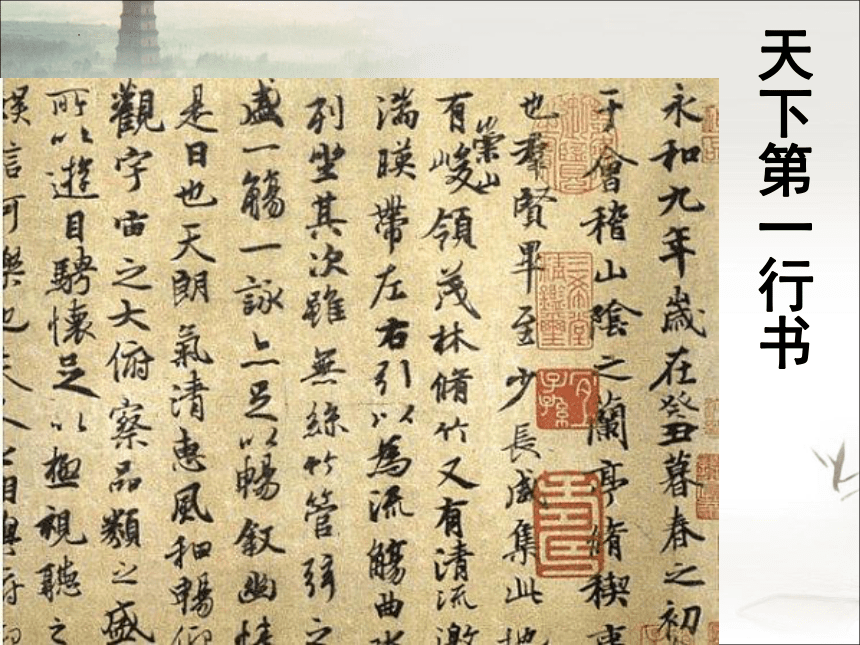 天下第一行书
永和九年歲在癸丑暮春之初
于會稽山陰之蘭亭脩稧事
也羣賢畢至少長咸集此地
有崇山峻領茂林脩竹又有清流激
湍暎帶左右引以為流觴曲水
列坐其次雖無絲竹管弦之
盛一觴一詠亦足以暢叙幽情
是日也天朗氣清惠風和暢仰
觀宇宙之大俯察品類之盛
所以遊目騁懷足以極視聽之
娛信可樂也夫人之相與俯仰